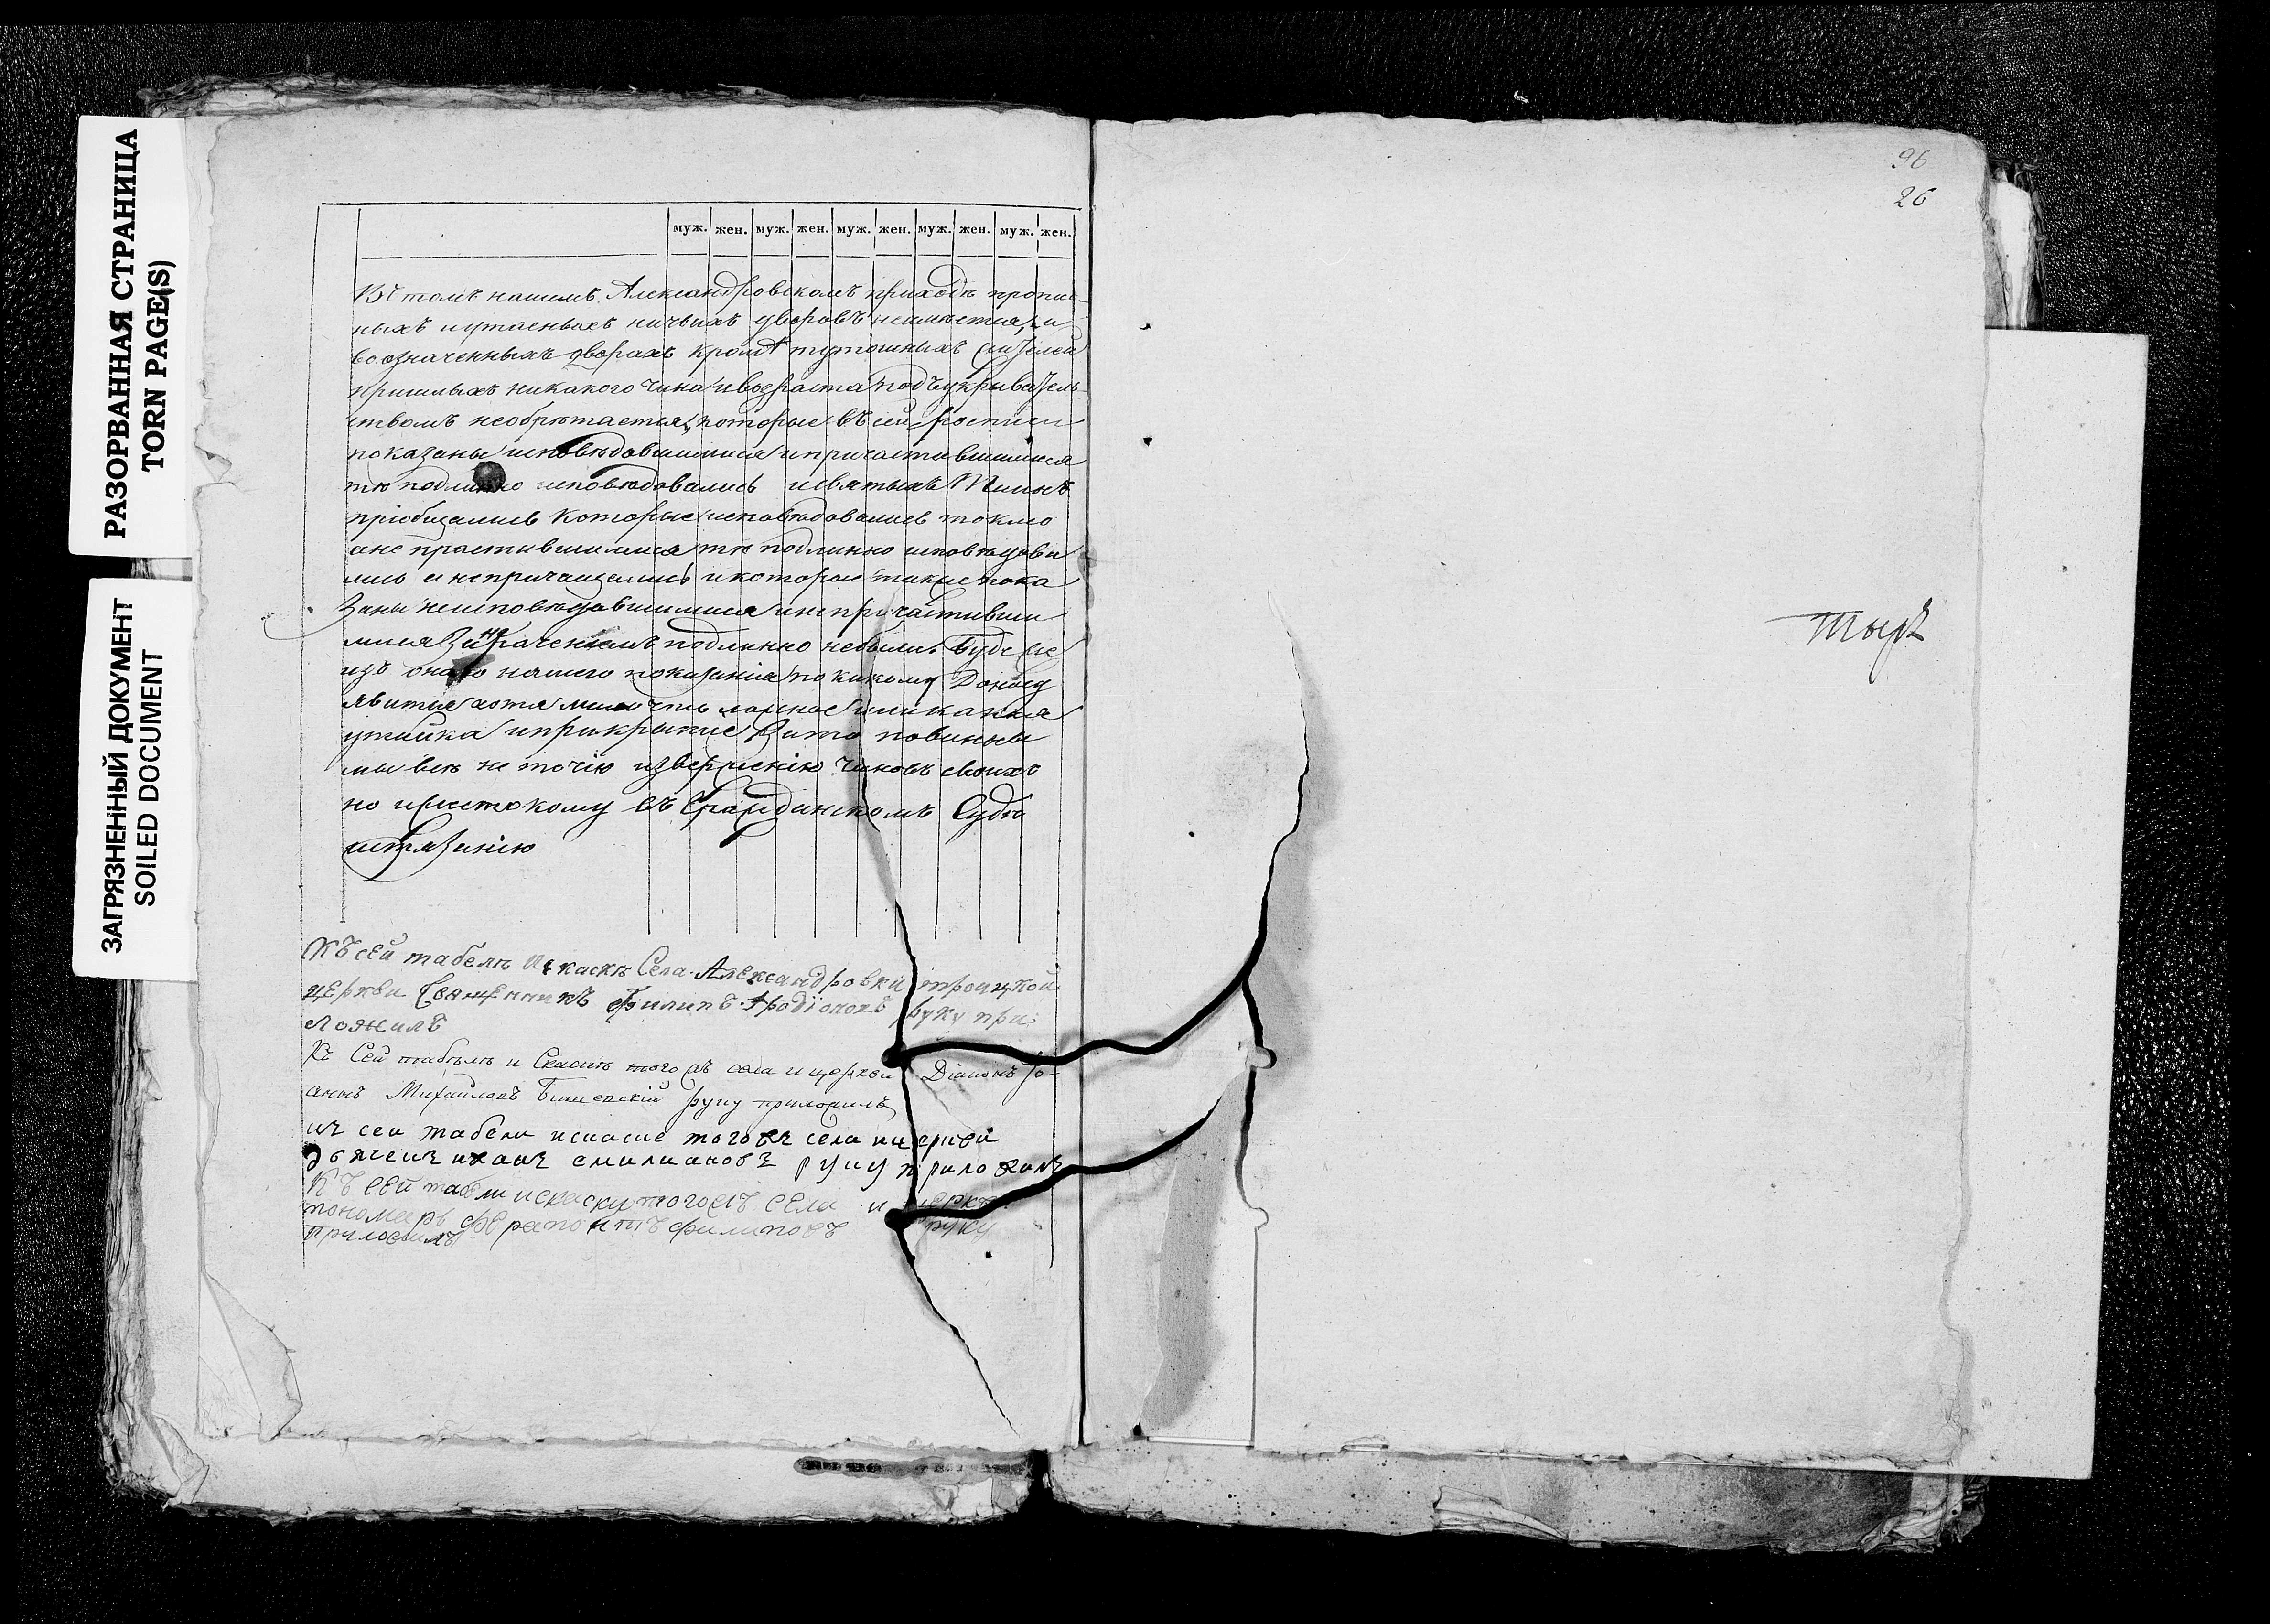 РАЗОРВАННАЯ СТРАНИЦА
TORN PAGE(S)
ЗАГРЯЗНЕННЫЙ ДОКУМЕНТ
SOILED DOCUMENT
муж. жен. муж. жен. муж. жен. муж. жен. муж. жен.
Въ томъ нашемъ Александровскомъ приходѣ пропис-
ныхъ и утаеныхъ ничьихъ дворовъ неимѣется, и
во означенныхъ дворахъ кромѣ тутошныхъ жителей
пришлыхъ никакого чина и возраста подъ укрыватель-
ствомъ необрѣтается, которые въ сей росписи
показаны исповѣдовавшимися и причастившимися
тѣ подлинно исповѣдовались и святыхъ Тинъ
пріобщались которые исповѣдовались токмо
а не прастившимися тѣ подлинно исповѣдова
лись а не причащались и которые такие пока
заны неисповѣдавшимися и не причастивши
мися За нераченіемъ подлинно небыли. Буде же
изъ онаго нашего показанія по какому Доносу
явится хотя мало что ложное или какая
утайка и прикрытие За то повинны
мы всѣ не точію изверженію чиновъ своихъ
но и жестокому въ Гражданскомъ Судѣ
истязанію
Къ сей табелѣ и скаскѣ Села Александровки троицкой
церкви Священникъ Филипъ Иродіоновъ руку при:
ложилъ
Къ Сей табѣлѣ и Скаскѣ того жъ села и церкви Діаконъ Іо-
аннъ Михайловъ руку приложилъ
къ сеи табели искаске тогожъ села ицеркви
дьячекъ иванъ емилиановъ руку приложилъ
Къ сей табли искаску тогожъ села и церкви
пономарь ферапонтъ филиповъ руку
приложилъ
96
26
тыръ